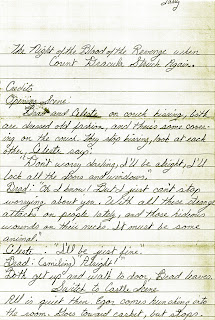 The Night of the Blood of the Revenge when
Count Dracula Struck Again.
Credits
Opening Scene
Brad and Celeste on couch kissing, both
are dressed old fashion, and there's some cover-
ing on the couch. They stop kissing, look at each
other, Celeste says:
"Don't worry darling, I'll be alright, I'll
lock all the doors and windows."
Brad: Oh I know! But I just can't stop
worrying about you. With all these strange
attacks on people lately, and those hideous
wounds on their necks. It must be some
animal."
Celeste: "I'll be just fine"
Brad: (smiling) "Alright"
Both get up and walk to door, Brad leaves
Switch to Castle Scene
All is quiet then Egor comes hunching into
the room. Goes toward casket, but stops.